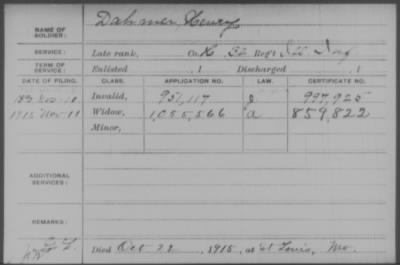 NAME OF SOLDIER: Dahmer, Henry
SERVICE: Late rank, Co. K, 32 Reg't Ill Inf
TERM OF SERVICE: Enlisted , 1 Discharged , 1
DATE OF FILING. CLASS. APPLICATION NO. LAW. CERTIFICATE NO.
Invalid, 951,117 997,925
1915 Nov 11 Widow, 1,055,566 a 859,822
Minor,
ADDITIONAL SERVICES:
REMARKS:
Died Oct 22, 1915, at St Louis, Mo.